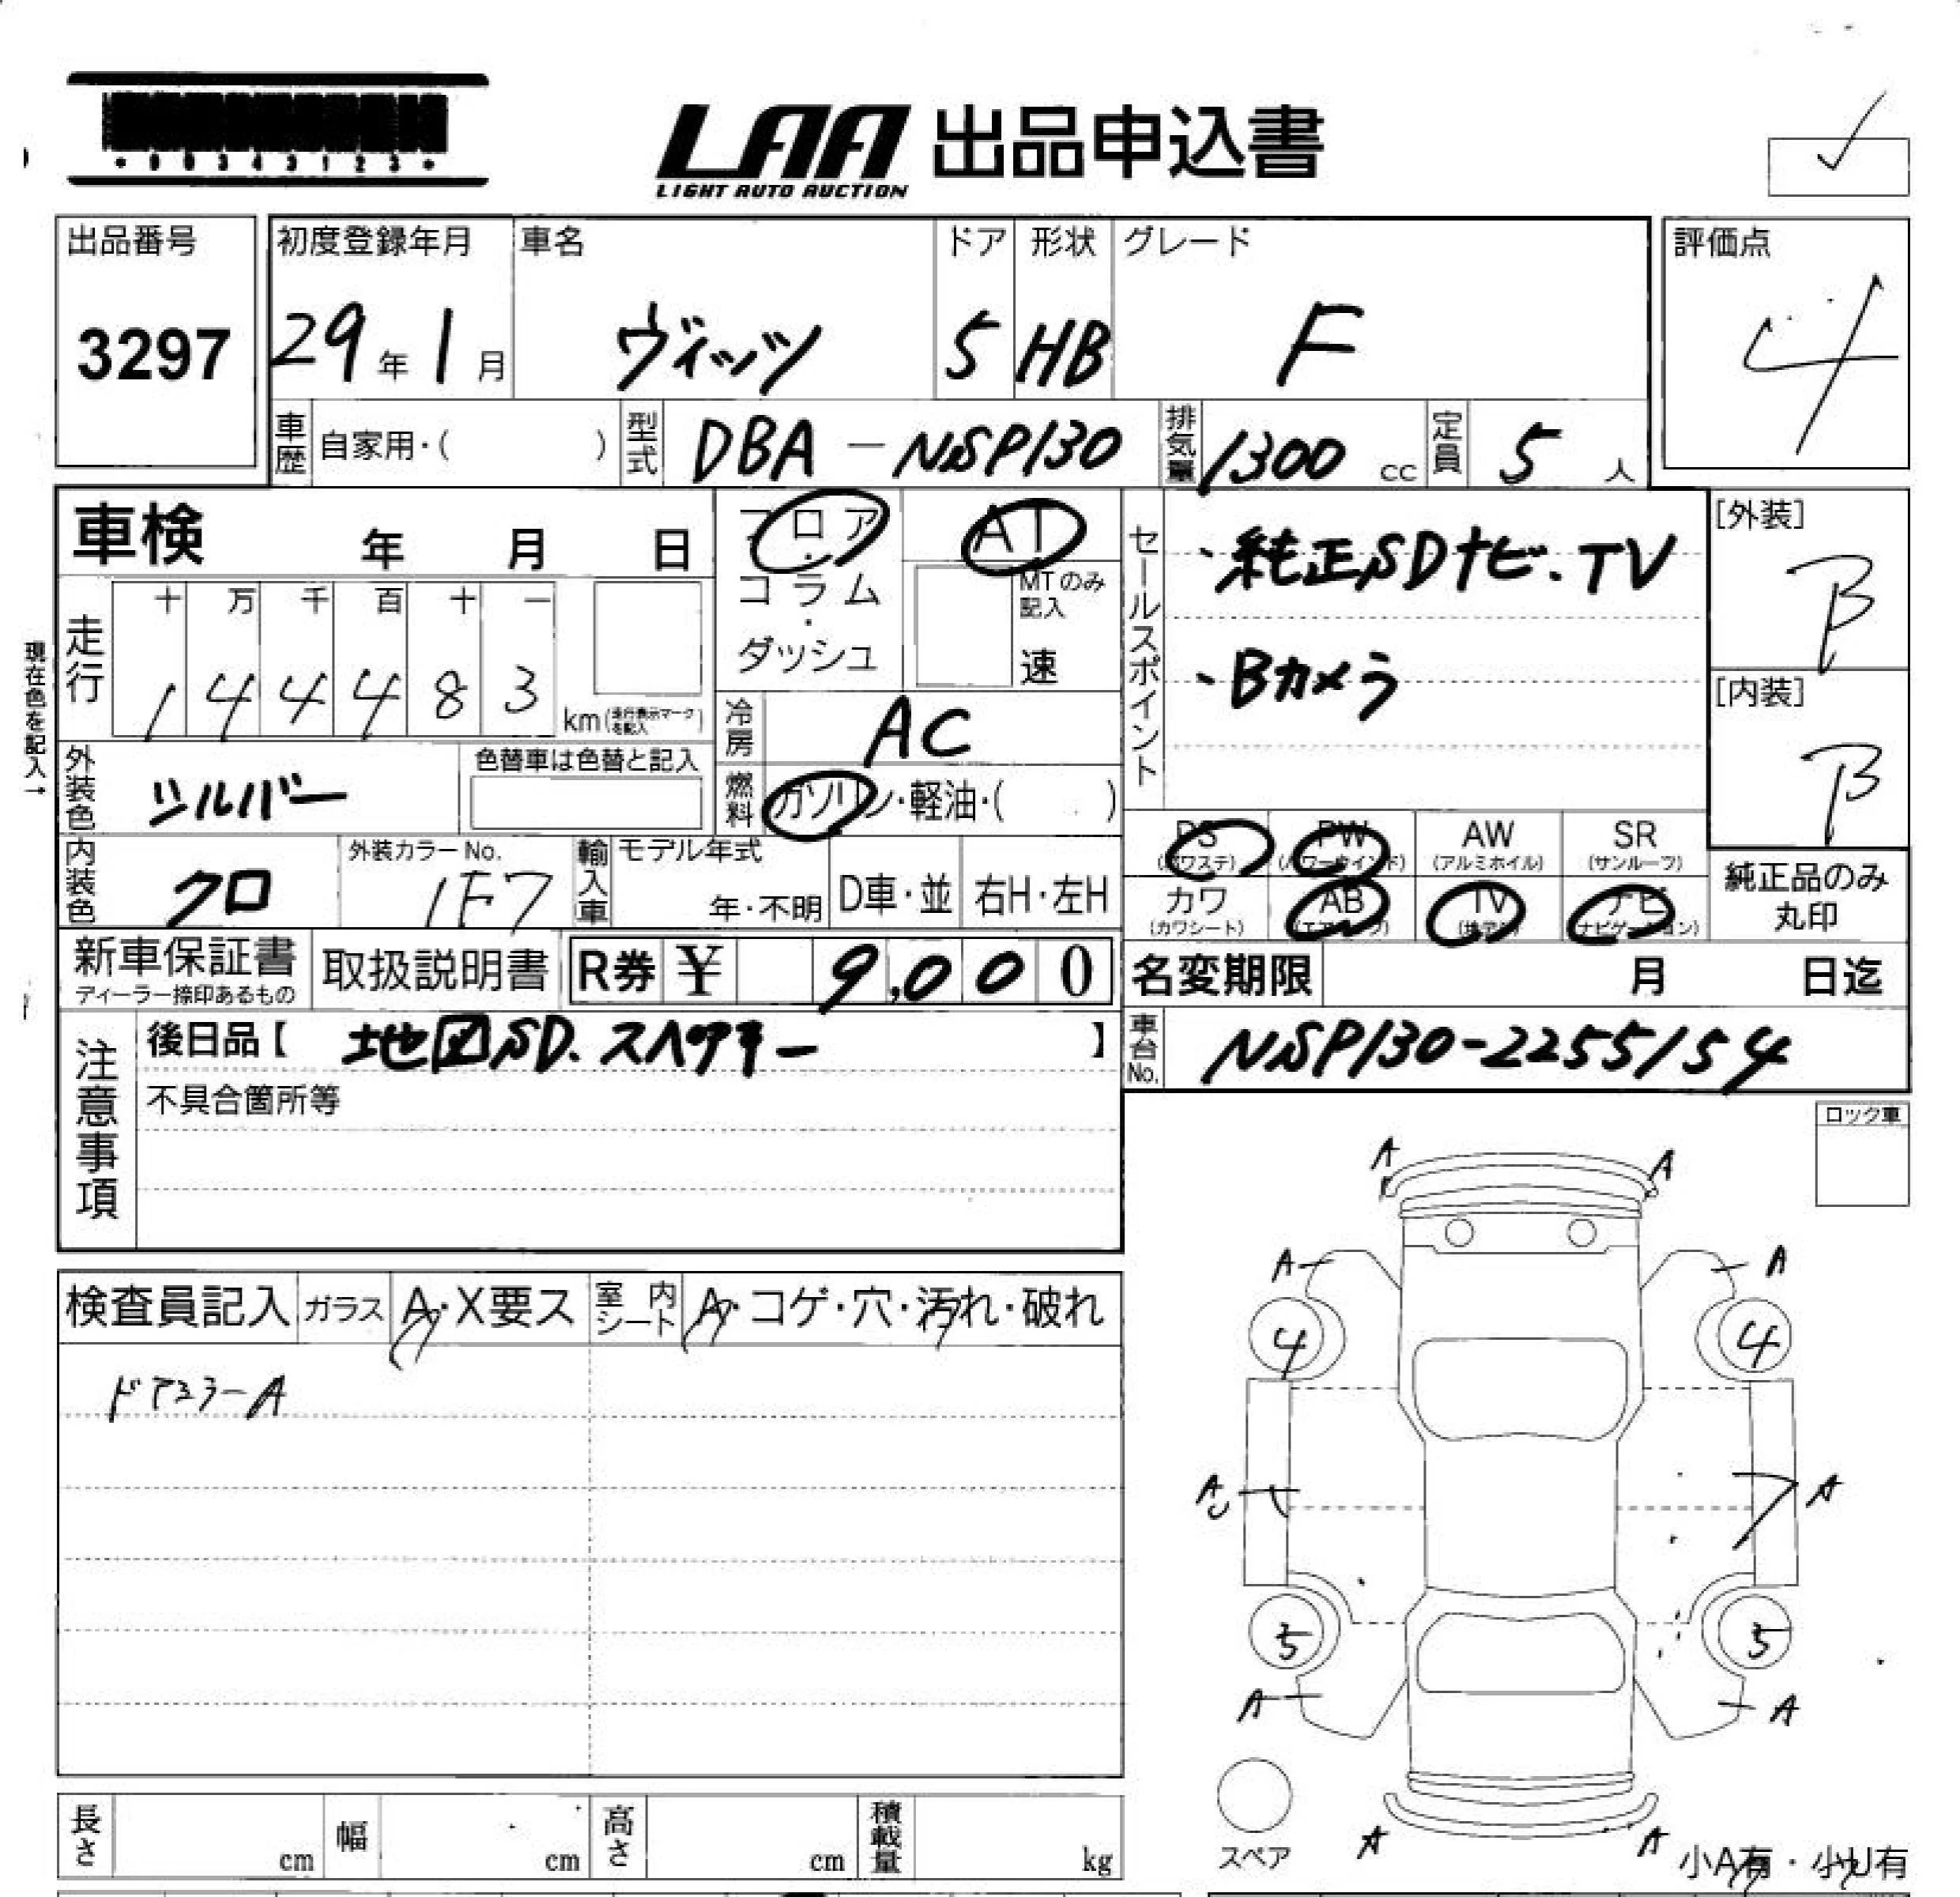 *00343123*
LAA 出品申込書
LIGHT AUTO AUCTION
出品番号 初度登録年月 車名 ドア 形状 グレード 評価点
3297 29年1月 ヴィッツ 5 HB F 4
車歴 自家用・( ) 型式 DBA-NSP130 排気量 1300 cc 定員 5 人
車検 年 月 日 フロア・コラム・ダッシュ AT
MTのみ記入 速
セールスポイント
・純正SDナビ.TV
・Bカメラ
[外装] B
[内装] B
現在色を記入→
走行 十 万 千 百 十 一
1 4 4 4 8 3 km(走行表示マークを記入)
冷房 AC
燃料 ガソリン・軽油・( )
外装色 シルバー 色替車は色替と記入
内装色 クロ 外装カラーNo. 1F7 輸入車 モデル年式 年・不明 D車・並 右H・左H
PS (パワステ) PW (パワーウインド) AW (アルミホイル) SR (サンルーフ)
カワ (カワシート) AB (エアバッグ) TV (地デジ) ナビ (ナビゲーション)
純正品のみ丸印
新車保証書 ディーラー捺印あるもの 取扱説明書 R券 ¥ 9,000 名変期限 月 日迄
注意事項 後日品【 地図SD.スペアキー 】
車台No. NSP130-2255154
不具合箇所等
ロック車
検査員記入 ガラス A・X要ス 室内シート A・コゲ・穴・汚れ・破れ
ドアミラーA
A A
A A
4 4
A A
5 5
A A
スペア
A A
小A有・小U有
長さ cm 幅 cm 高さ cm 積載量 kg